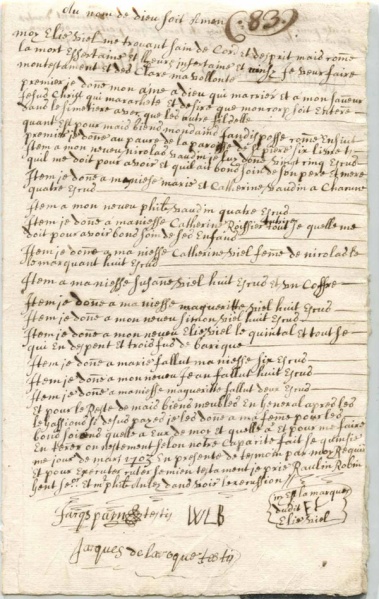 Au nom de dieu soit Amen
(83.)
moy Elie Viel me trouvant sain de Cord et desprit maid come
la mort Est sertaine et lheure insertaine et je veux faire
mon testament et de Clare ma vollonte
premier je done mon ame a dieu qui et a mon sauveur
Jesus Christ qui ma rachete et desire que mon corp soit Entere
dans le simetiere avec que les autre fidelle
quant Est pour maid biend mondaind Jan dispose come Ensuit
premier je done au pauvre de la paroisse de St piere six livre t
Item a mon neveu nicolas vaudin je luy done vint cinq Escud
quil me doit pour avoir et quil ait bond soin de son pere et mere
Item je done a maniese marie et Catherine Vaudin a Chacune
quatre Escud
Item a mon neveu philip vaudin quatre Escud
Item je done a maniesse Catherine Rossier tout se quelle me
doit pour avoir bond soin de ses Enfand
Item je done a ma niesse Catherine Viel feme de nicolas le
lemarquant huit Escud
Item a ma niesse susane Viel huit Escud et un Coffre
Item je done a maniesse magueritte Viel huit Escud
Item je done a mon neveu simon Viel huit Escud
Item je done a mon neveu Elie Viel le quintal et tout se
qui En despent et troid fud de barique
Item je done a marie fallut ma niesse six Escud
Item je done a mon neveu Jean fallut huit Escud
Item je done a maniesse magueritte fallut deux Escud
Et pour le Reste de maid biend meubled En general apred led
led je led done a ma feme pour led
bond soiend quelle a Eut de moy et quelle a Et pour me faire
En terer on nestement selon notre Capasite fait se quinsie
me jour de mars 1703 En presente de tesmoin par moy Requit
et pour Executer semien testament je prie Paulin Robin
Jacqs pain testis
WLB
m E la marque
dudit ET
Elie Viel
Jacques de la roque testis